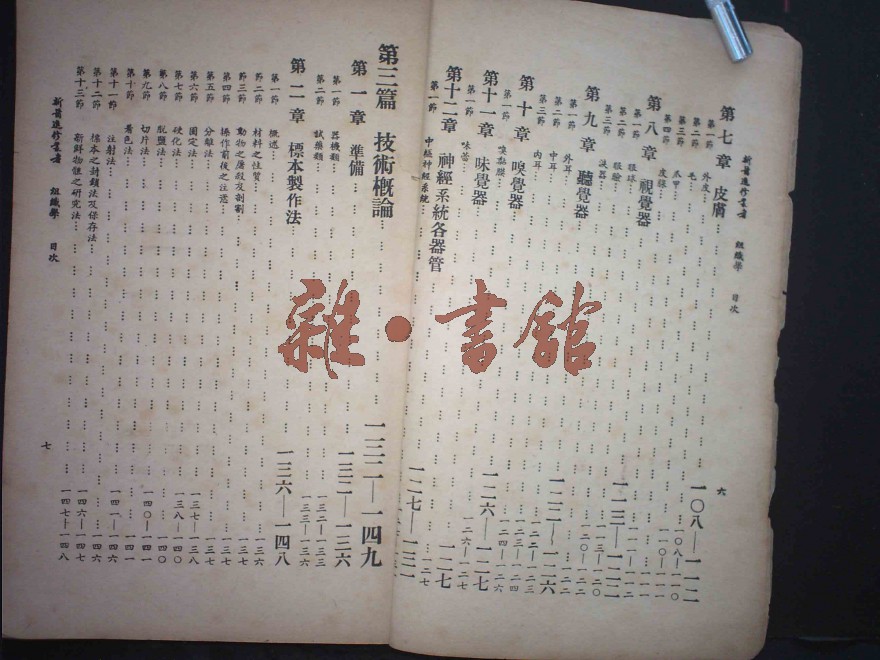 新醫進修叢書 組織學 目次
六
第七章 皮膚 一〇八—一一二
第一節 外皮 一〇八—一一〇
第二節 毛
第三節 爪甲
第四節 皮腺
第八章 視覺器 一一三—一二二
第一節 眼球
第二節 眼瞼
第三節 淚器
第九章 聽覺器 一二二—一二六
第一節 外耳 一二二
第二節 中耳
第三節 內耳
第十章 嗅覺器
第一節 嗅黏膜
第十一章 味覺器 一二六—一二七
第一節 味蕾 一二六—一二七
第十二章 神經系統各器管 一二七—一三一
第一節 中樞神經系統
第三篇 技術概論 一三二—一四九
第一章 準備 一三二—一三六
第一節 器機類 一三二—一三三
第二節 試藥類 一三三—一三六
第二章 標本製作法 一三六—一四八
第一節 概述 一三六
第二節 材料之性質 一三六
第三節 動物之屠殺及剖割
第四節 操作前後之注意 一三七
第五節 分離法 一三七
第六節 固定法 一三七—一三八
第七節 硬化法 一三八—一四〇
第八節 脫鹽法 一四〇
第九節 切片法 一四〇—一四一
第十節 着色法
第十一節 注射法 一四六
第十二節 標本之封鎖法及保存法 一四六—一四七
第十三節 新鮮物體之研究法 一四七—一四八
新醫進修叢書 組織學 目次
七
雜·書館